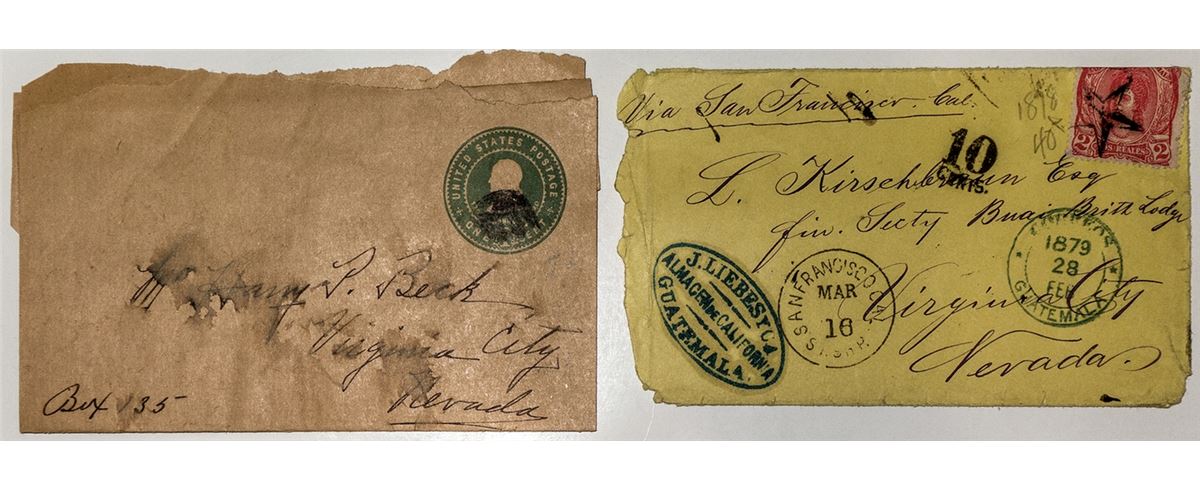 UNITED STATES POSTAGE
Harry S. Beck
Virginia City
Nevada
Box 135
Via San Francisco. Cal.
1878
40
10
CENTS.
2 2
OS REALES
L. Kirschbraun Esq
fin. Secty Bnai Brith Lodge
Virginia City
Nevada.
J. LIEBES Y CA
ALMACEN DE CALIFORNIA
GUATEMALA.
SAN FRANCISCO
MAR
16
1879
28
FEB
GUATEMALA